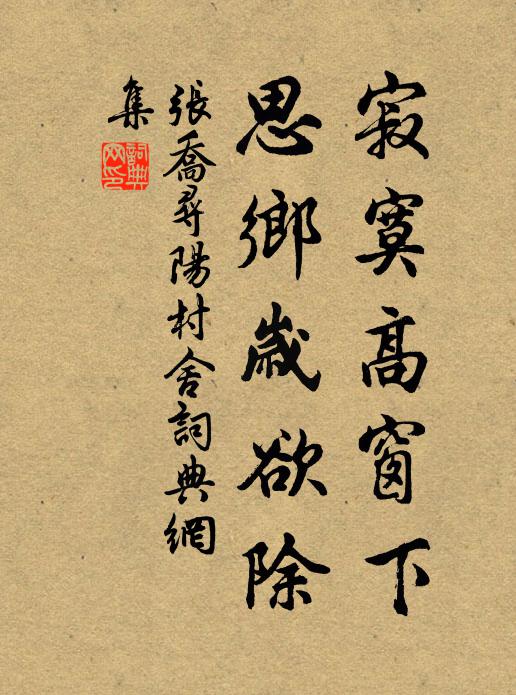 寂寞高窗下
思鄉歲欲除
張喬尋陽村舍詞典網
集
詞典
网印